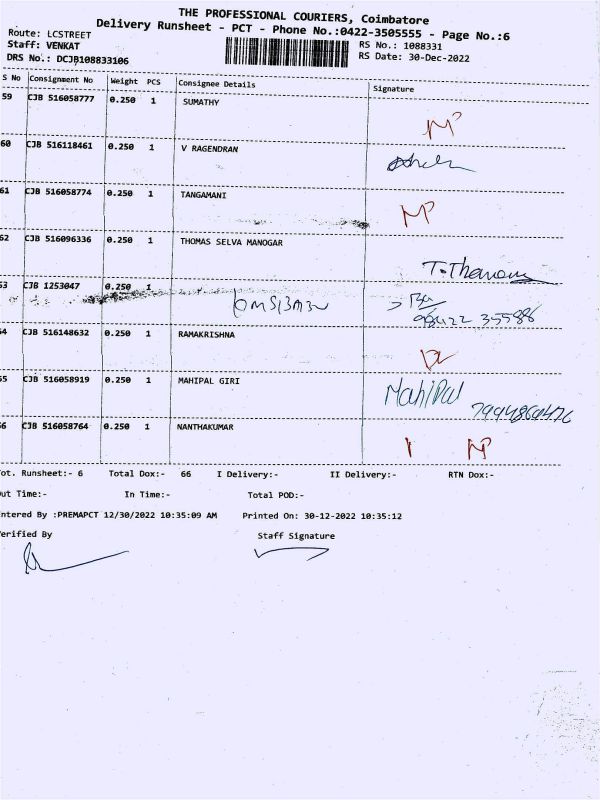 THE PROFESSIONAL COURIERS, Coimbatore
Delivery Runsheet - PCT - Phone No.:0422-3505555 - Page No.:6
Route: LCSTREET
Staff: VENKAT
RS No.: 1088331
DRS No.: DCJB108833106
RS Date: 30-Dec-2022
S No Consignment No Weight PCS Consignee Details Signature
59 CJB 516058777 0.250 1 SUMATHY
60 CJB 516118461 0.250 1 V RAGENDRAN
61 CJB 516058774 0.250 1 TANGAMANI
62 CJB 516096336 0.250 1 THOMAS SELVA MANOGAR
63 CJB 1253047 0.250 1
64 CJB 516148632 0.250 1 RAMAKRISHNA
65 CJB 516058919 0.250 1 MAHIPAL GIRI MahiPal
66 CJB 516058764 0.250 1 NANTHAKUMAR
ot. Runsheet:- 6 Total Dox:- 66 I Delivery:- II Delivery:- RTN Dox:-
ut Time:- In Time:- Total POD:-
ntered By :PREMAPCT 12/30/2022 10:35:09 AM Printed On: 30-12-2022 10:35:12
erified By Staff Signature